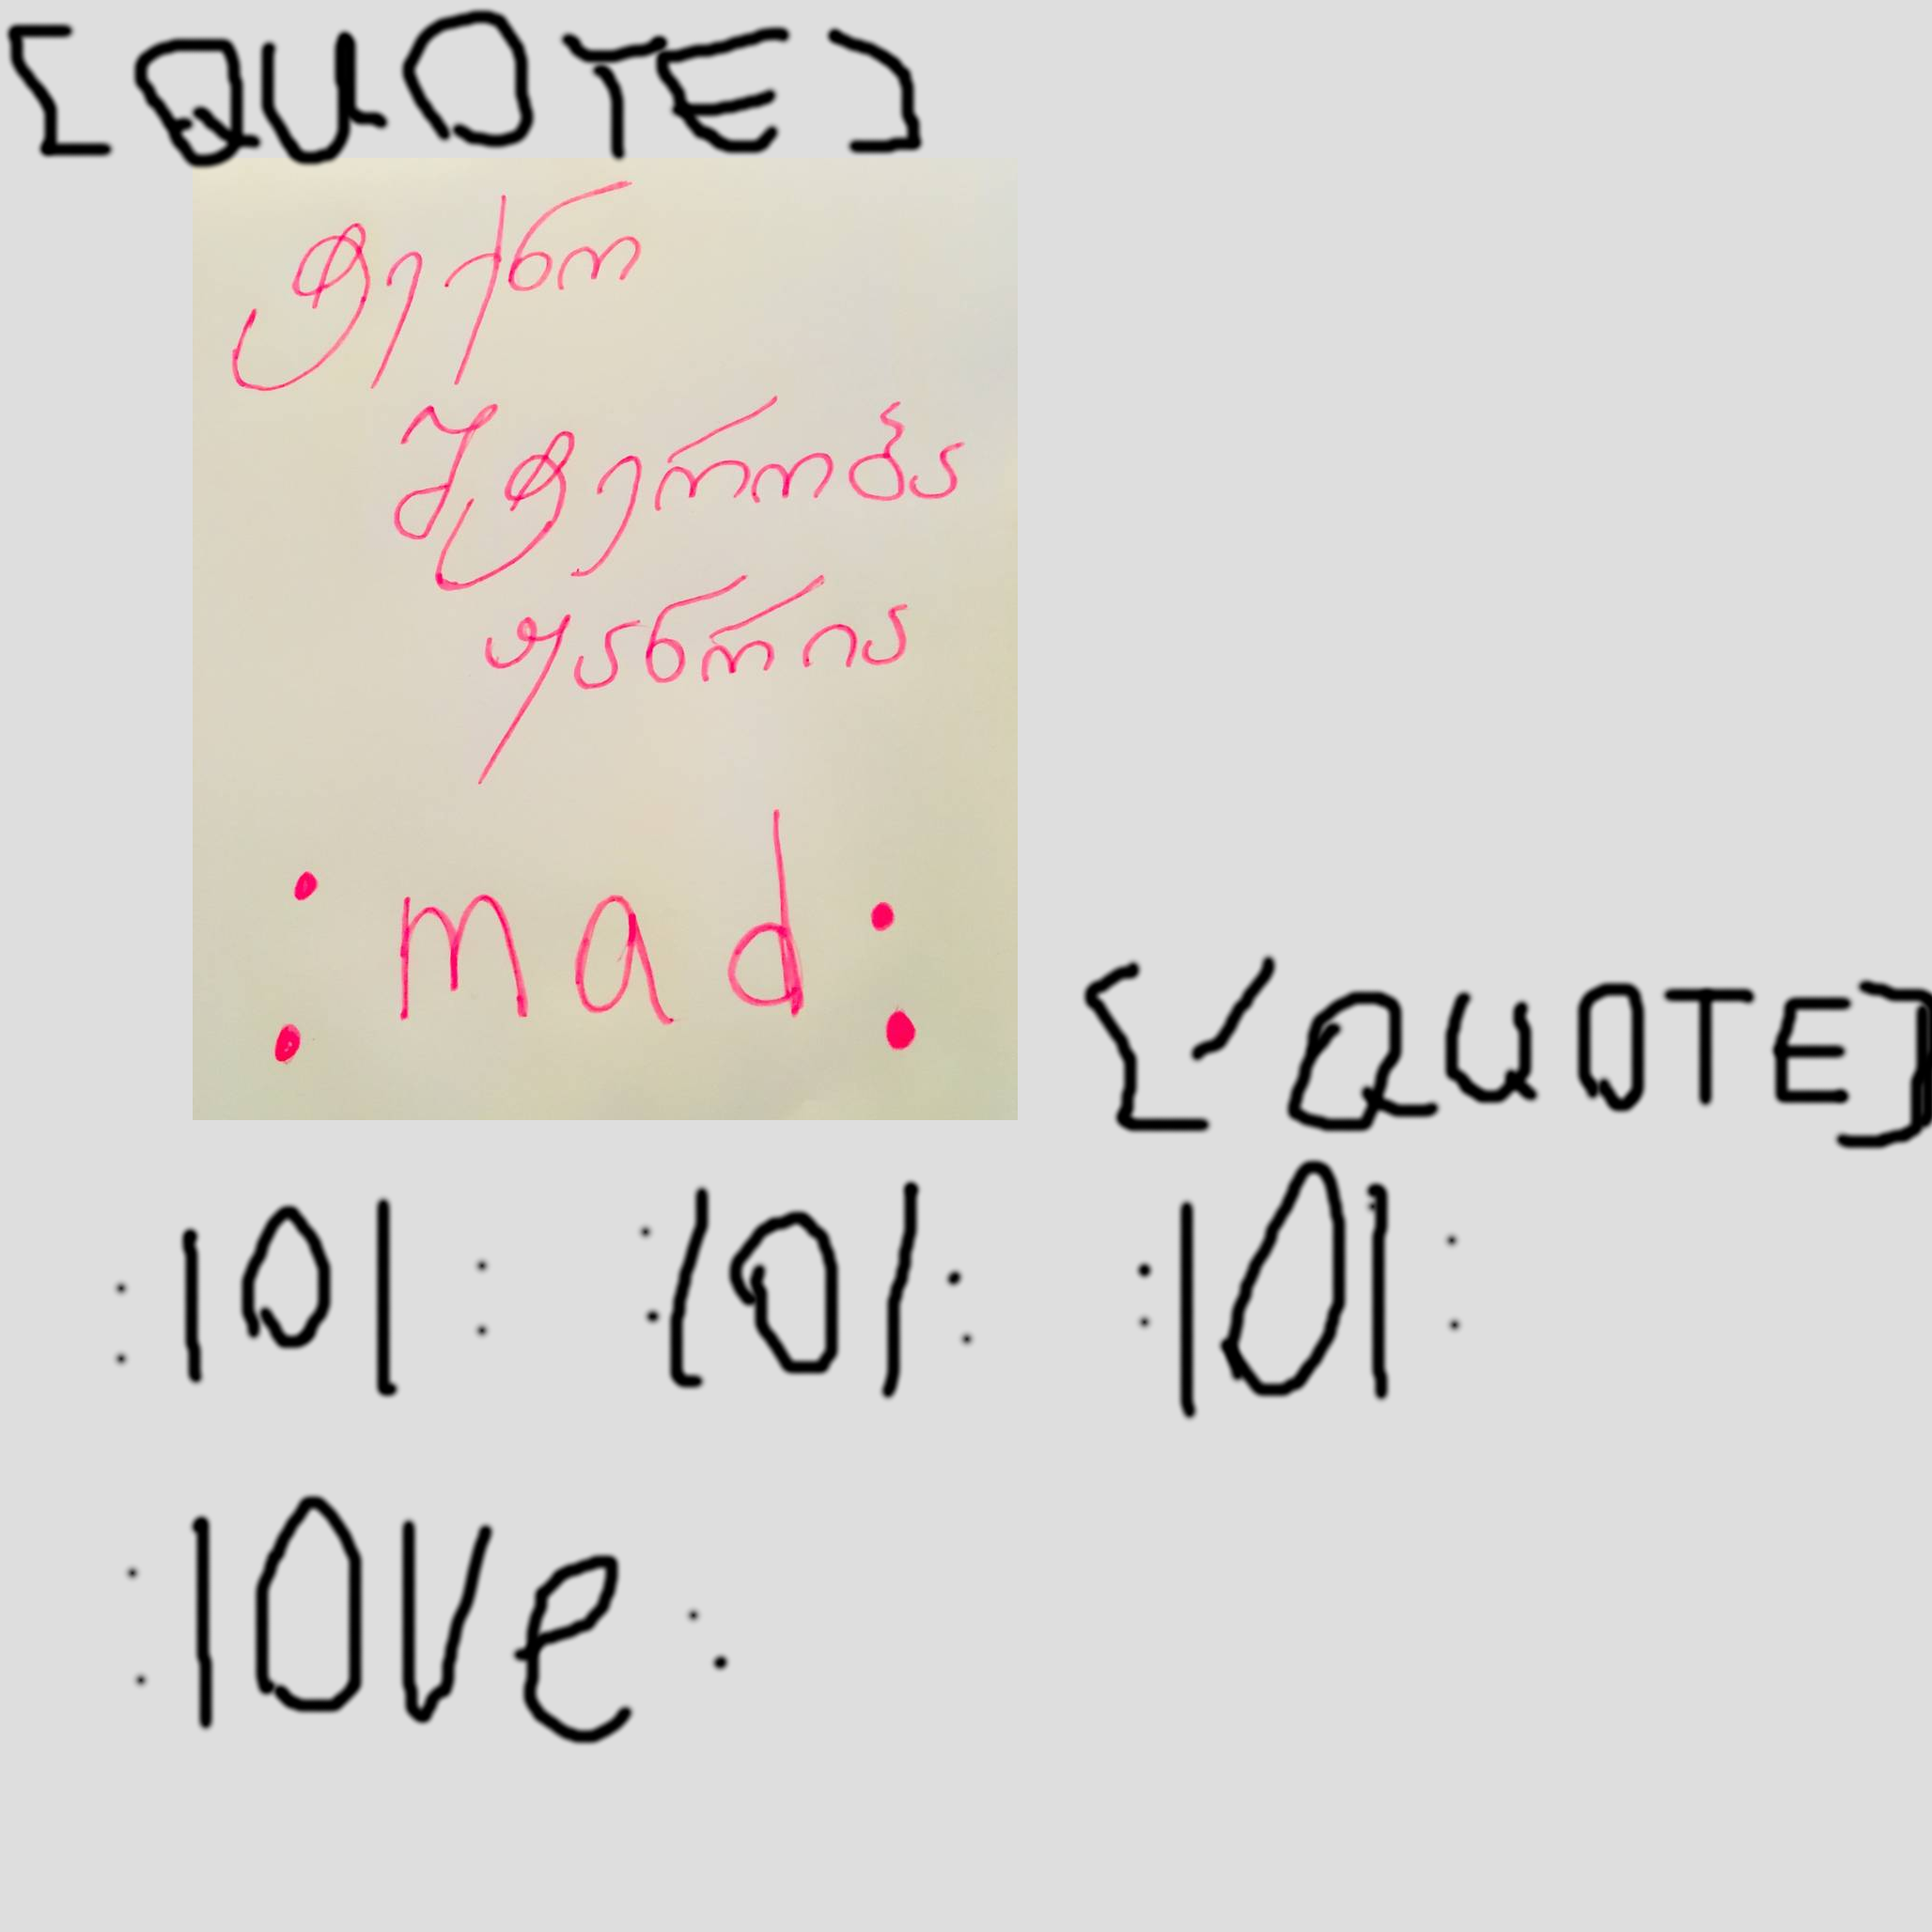 [QUOTE]
ტექნო
შტერობა
ჟანრია
:mad:
[/QUOTE]
:lol: :lol: :lol:
:love: